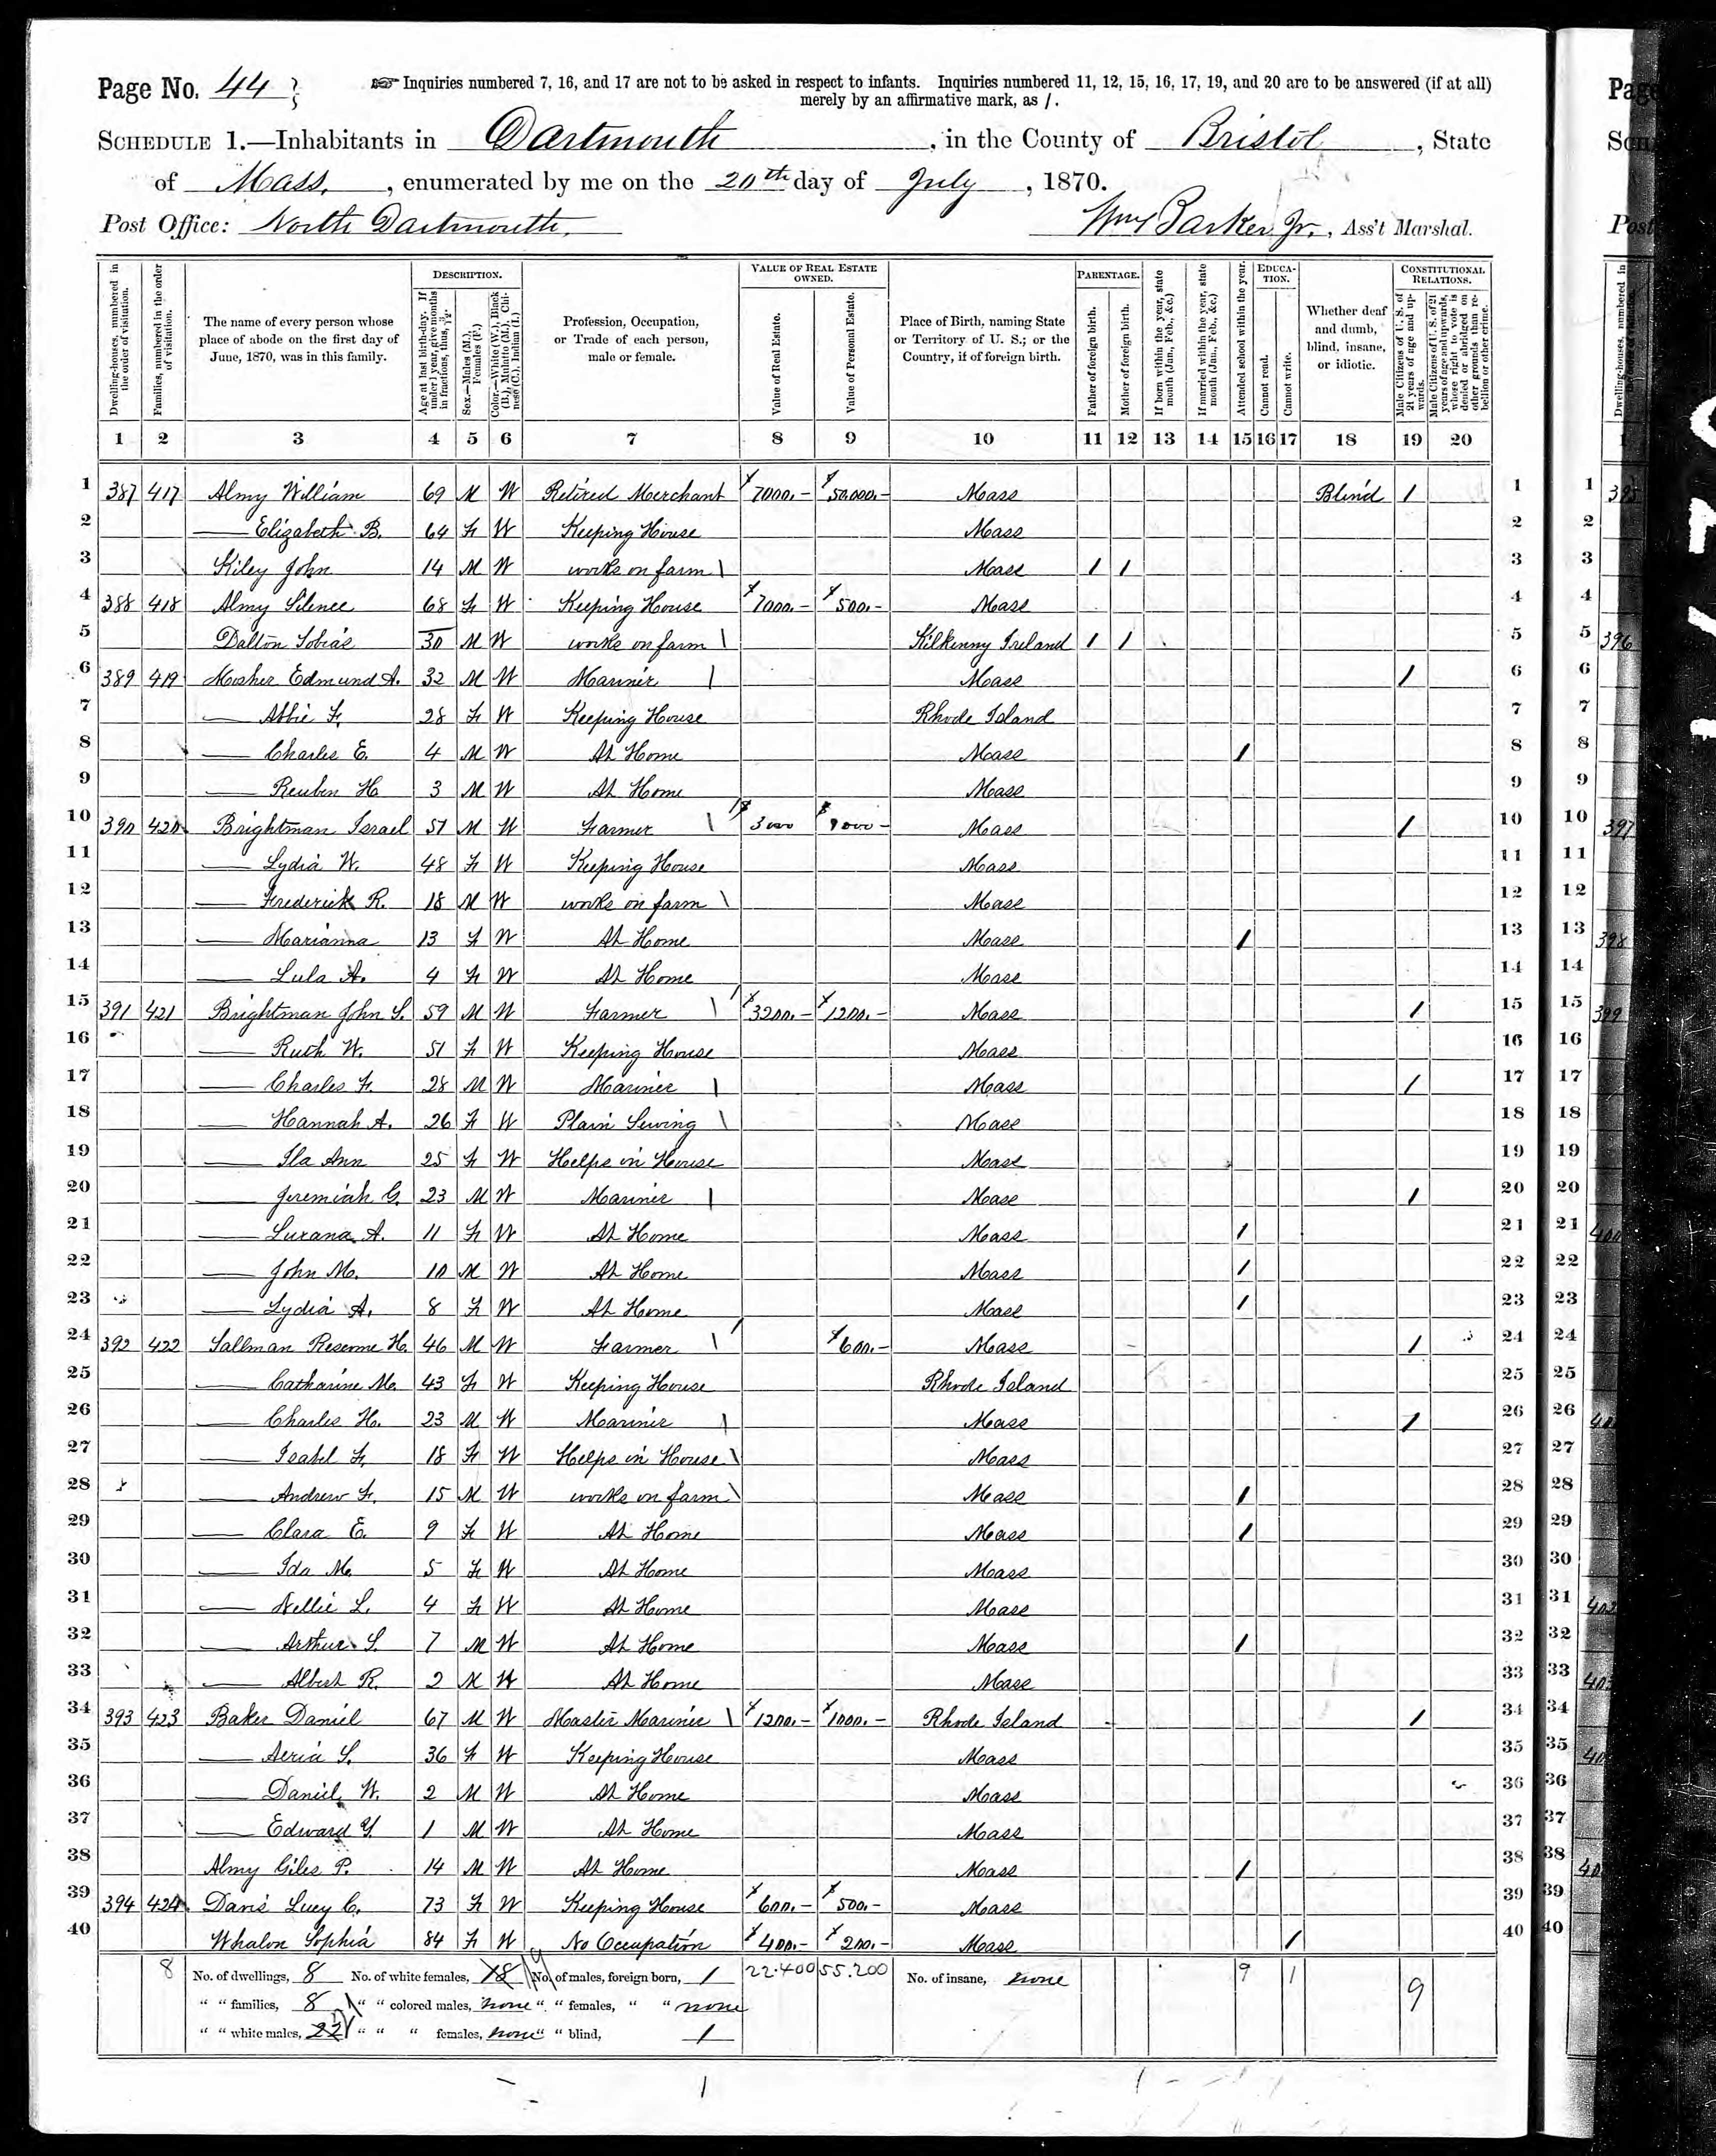 Page No. 44
☞ Inquiries numbered 7, 16, and 17 are not to be asked in respect to infants. Inquiries numbered 11, 12, 15, 16, 17, 19, and 20 are to be answered (if at all)
merely by an affirmative mark, as /.
SCHEDULE 1.—Inhabitants in Dartmouth, in the County of Bristol, State
of Mass., enumerated by me on the 20th day of July, 1870.
Post Office: North Dartmouth. Wm Barker Jr., Ass't Marshal.
Dwelling-houses, numbered in the order of visitation.
Families, numbered in the order of visitation.
The name of every person whose place of abode on the first day of June, 1870, was in this family.
DESCRIPTION.
Age at last birth-day. If under 1 year, give months in fractions, thus, 3/12.
Sex.—Males (M.), Females (F.)
Color.—White (W.), Black (B.), Mulatto (M.), Chinese (C.), Indian (I.)
Profession, Occupation, or Trade of each person, male or female.
VALUE OF REAL ESTATE OWNED.
Value of Real Estate.
Value of Personal Estate.
Place of Birth, naming State or Territory of U. S.; or the Country, if of foreign birth.
PARENTAGE.
Father of foreign birth.
Mother of foreign birth.
If born within the year, state month (Jan., Feb., &c.)
If married within the year, state month (Jan., Feb., &c.)
Attended school within the year.
EDUCATION.
Cannot read.
Cannot write.
Whether deaf and dumb, blind, insane, or idiotic.
CONSTITUTIONAL RELATIONS.
Male Citizens of U. S. of 21 years of age and upwards.
Male Citizens of U. S. of 21 years of age and upwards, whose right to vote is denied or abridged on other grounds than rebellion or other crime.
1 2 3 4 5 6 7 8 9 10 11 12 13 14 15 16 17 18 19 20
1 387 417 Almy William 69 M W Retired Merchant $7000.- $50,000.- Mass Blind / 1
2 — Elizabeth B. 64 F W Keeping House Mass 2
3 Kiley John 14 M W works on farm \ Mass / / 3
4 388 418 Almy Silence 68 F W Keeping House $7000.- $500.- Mass 4
5 Dalton Tobias 30 M W works on farm \ Kilkenny Ireland / / 5
6 389 419 Mosher Edmund A. 32 M W Mariner \ Mass / 6
7 — Abbie F. 28 F W Keeping House Rhode Island 7
8 — Charles E. 4 M W At Home Mass / 8
9 — Reuben H 3 M W At Home Mass 9
10 390 420 Brightman Israel 51 M W Farmer \ $3000 Mass / 10
11 — Lydia W. 48 F W Keeping House Mass 11
12 — Frederick R. 18 M W works on farm \ Mass 12
13 — Marianna 13 F W At Home Mass / 13
14 — Lula A. 4 F W At Home Mass 14
15 391 421 Brightman John S. 59 M W Farmer \ $3200.- $1200.- Mass / 15
16 — Ruth W. 51 F W Keeping House Mass 16
17 — Charles F. 28 M W Mariner \ Mass / 17
18 — Hannah A. 26 F W Plain Sewing \ Mass 18
19 — Ila Ann 25 F W Helps in House Mass 19
20 — Jeremiah G. 23 M W Mariner \ Mass / 20
21 — Luxana A. 11 F W At Home Mass / 21
22 — John M. 10 M W At Home Mass / 22
23 — Lydia A. 8 F W At Home Mass / 23
24 392 422 Sallman H. 46 M W Farmer \ $600.- Mass / 24
25 — Catharine M. 43 F W Keeping House Rhode Island 25
26 — Charles H. 23 M W Mariner \ Mass / 26
27 — Isabel F. 18 F W Helps in House \ Mass 27
28 — Andrew F. 15 M W works on farm \ Mass / 28
29 — Clara E. 9 F W At Home Mass / 29
30 — Ida M. 5 F W At Home Mass 30
31 — Nellie L. 4 F W At Home Mass 31
32 — Arthur S. 7 M W At Home Mass / 32
33 — Albert R. 2 M W At Home Mass 33
34 393 423 Baker Daniel 67 M W Master Mariner \ $1200.- $1000.- Rhode Island / 34
35 — S. 36 F W Keeping House Mass 35
36 — Daniel W. 2 M W At Home Mass 36
37 — Edward Y. 1 M W At Home Mass 37
38 Almy Giles P. 14 M W At Home Mass / 38
39 394 424 Davis Lucy C. 73 F W Keeping House $600.- $500.- Mass 39
40 Whalon Sophia 84 F W No Occupation $400.- $200.- Mass / 40
8 No. of dwellings, 8 No. of white females, 18 19 No. of males, foreign born, 1 22.400 55.200 No. of insane, none 9 1 9
" " families, 8 " " colored males, none " " females, " " none
" " white males, 22 " " " females, none " " blind, 1